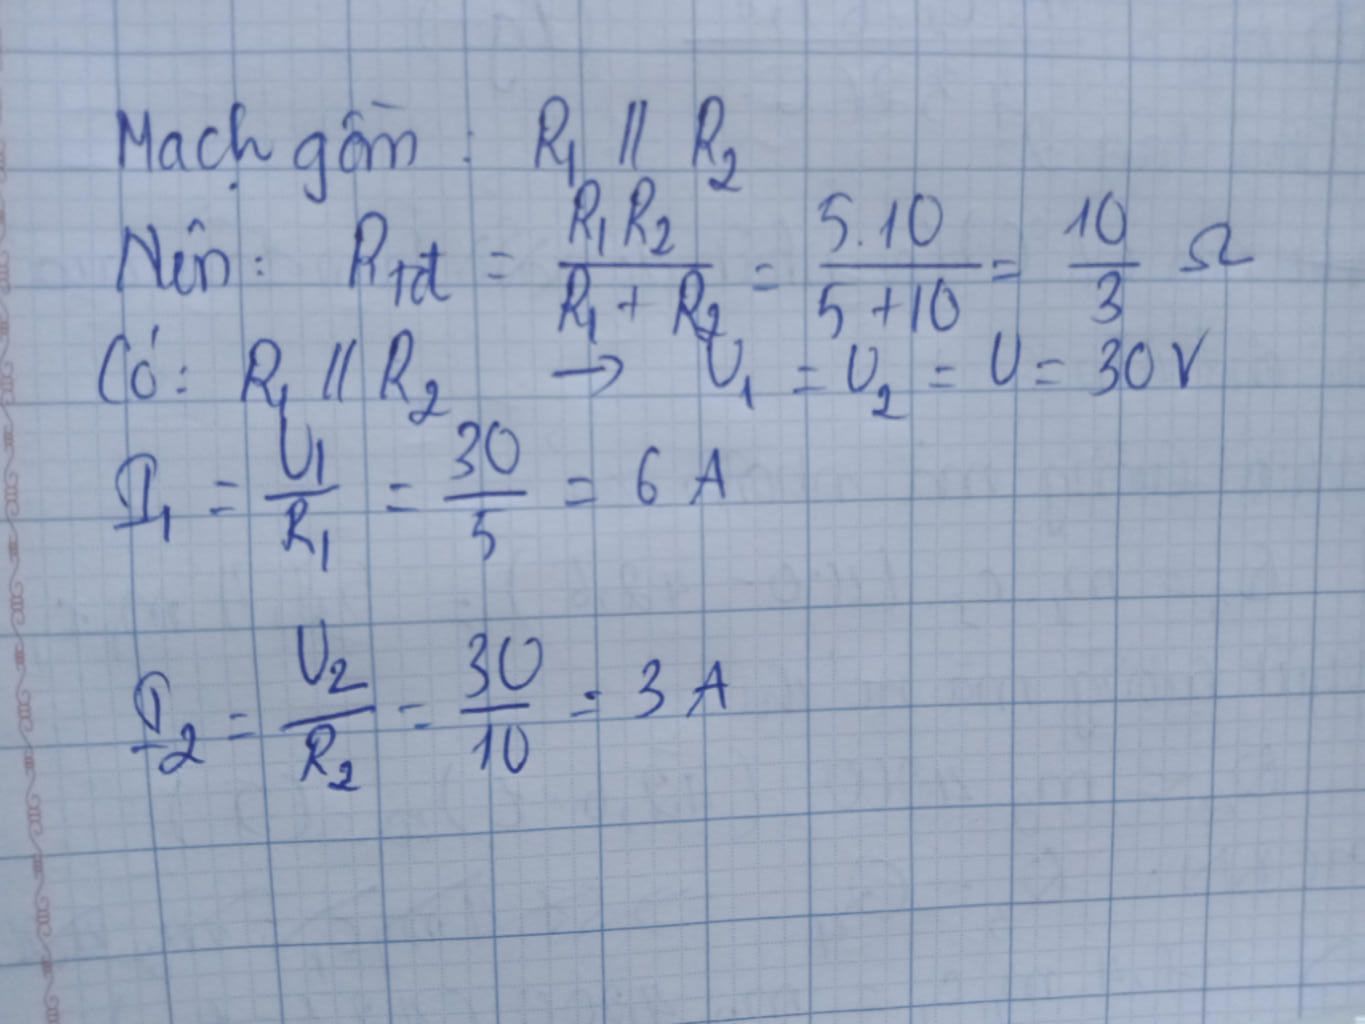 Mạch gồm : R₁ // R₂
Nên : Rtđ = R₁R₂/(R₁ + R₂) = 5.10/(5+10) = 10/3 Ω
Có : R₁ // R₂ → U₁ = U₂ = U = 30V
I₁ = U₁/R₁ = 30/5 = 6 A
I₂ = U₂/R₂ = 30/10 = 3 A